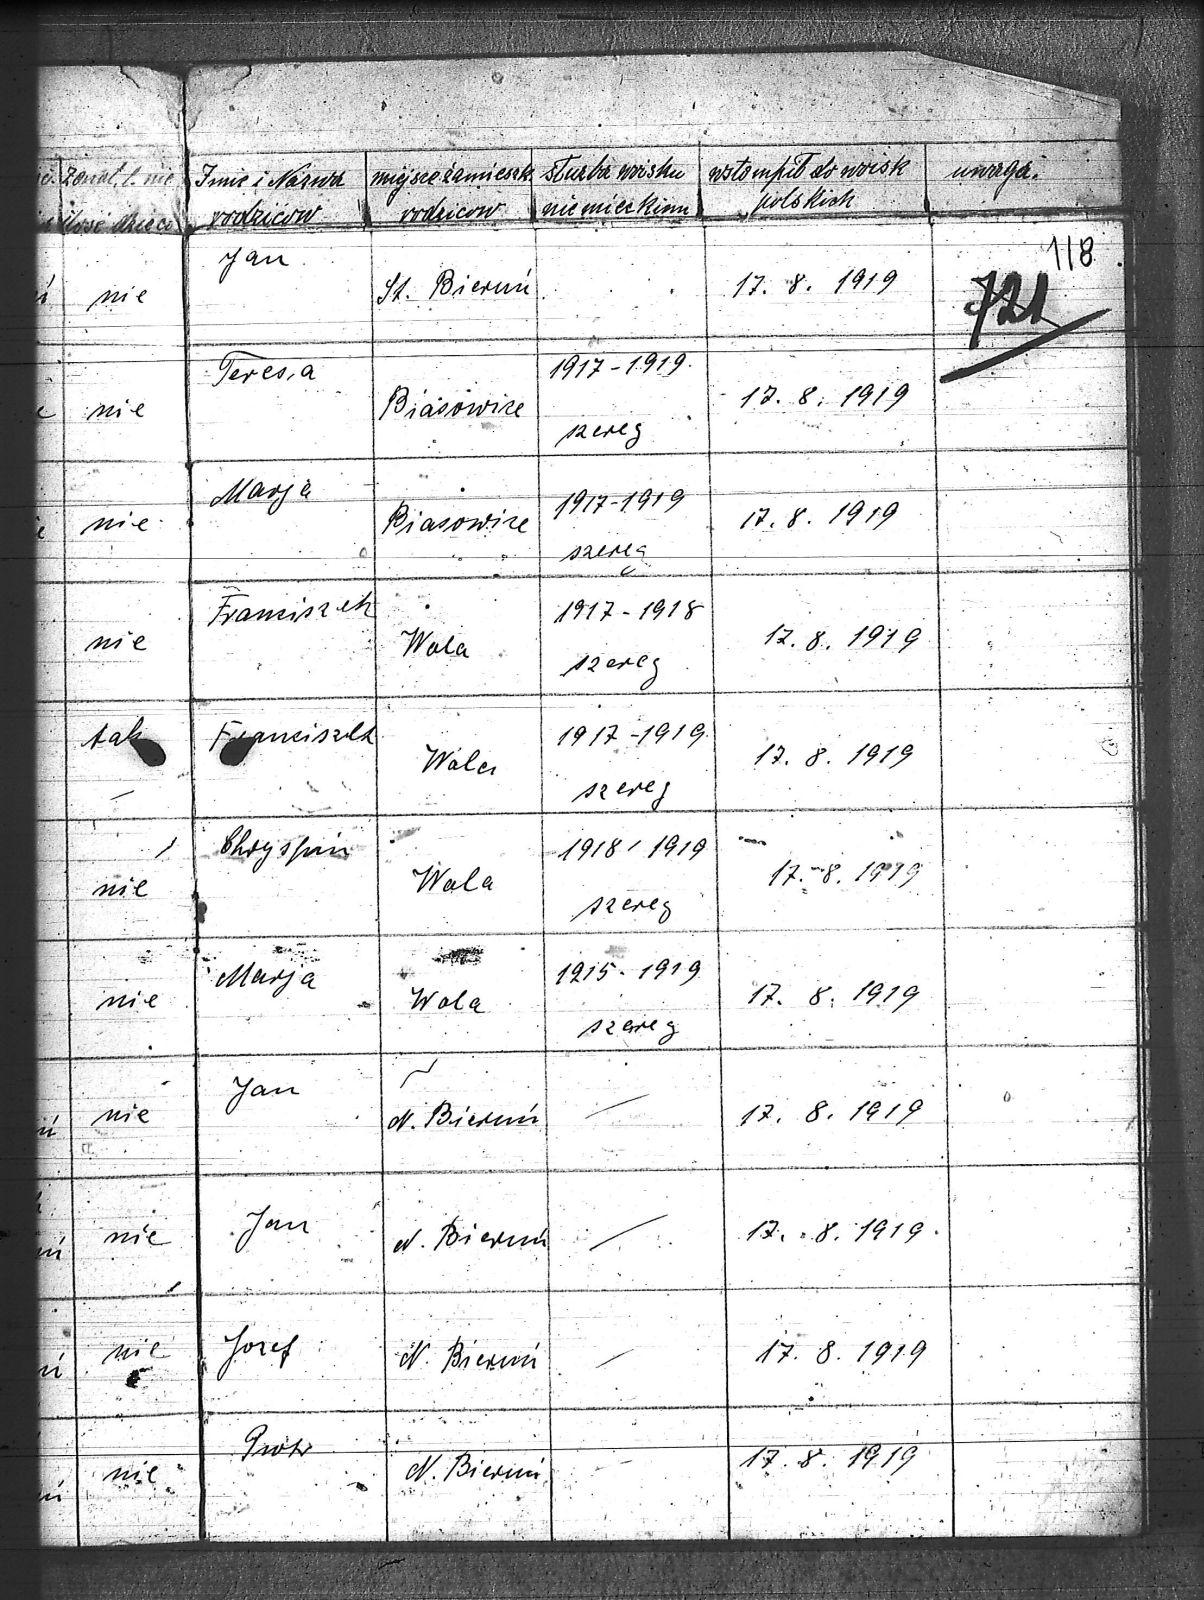 żonat. l. nie Imie i Nazwa miejsce zamieszk służba woisku wstompił do woisk uwaga.
ilość dzieci rodzicow rodzicow niemieckim polskich
118
nie Jan St. Bieruń 17. 8. 1919 721
nie Teresia Biasowice 1917-1919 szereg 17. 8. 1919
nie Marja Biasowice 1917-1919 szereg 17. 8. 1919
nie Franciszek Wola 1917-1918 szereg 17. 8. 1919
tak Franciszek Wola 1917-1919 szereg 17. 8. 1919
nie Wola 1918 1919 szereg 17. 8. 1919
nie Marja Wola 1915-1919 szereg 17. 8. 1919
nie Jan N. Bieruń — 17. 8. 1919
nie Jan N. Bieruń — 17. 8. 1919
nie Jozef N. Bieruń — 17. 8. 1919
nie Piotr N. Bieruń — 17. 8. 1919